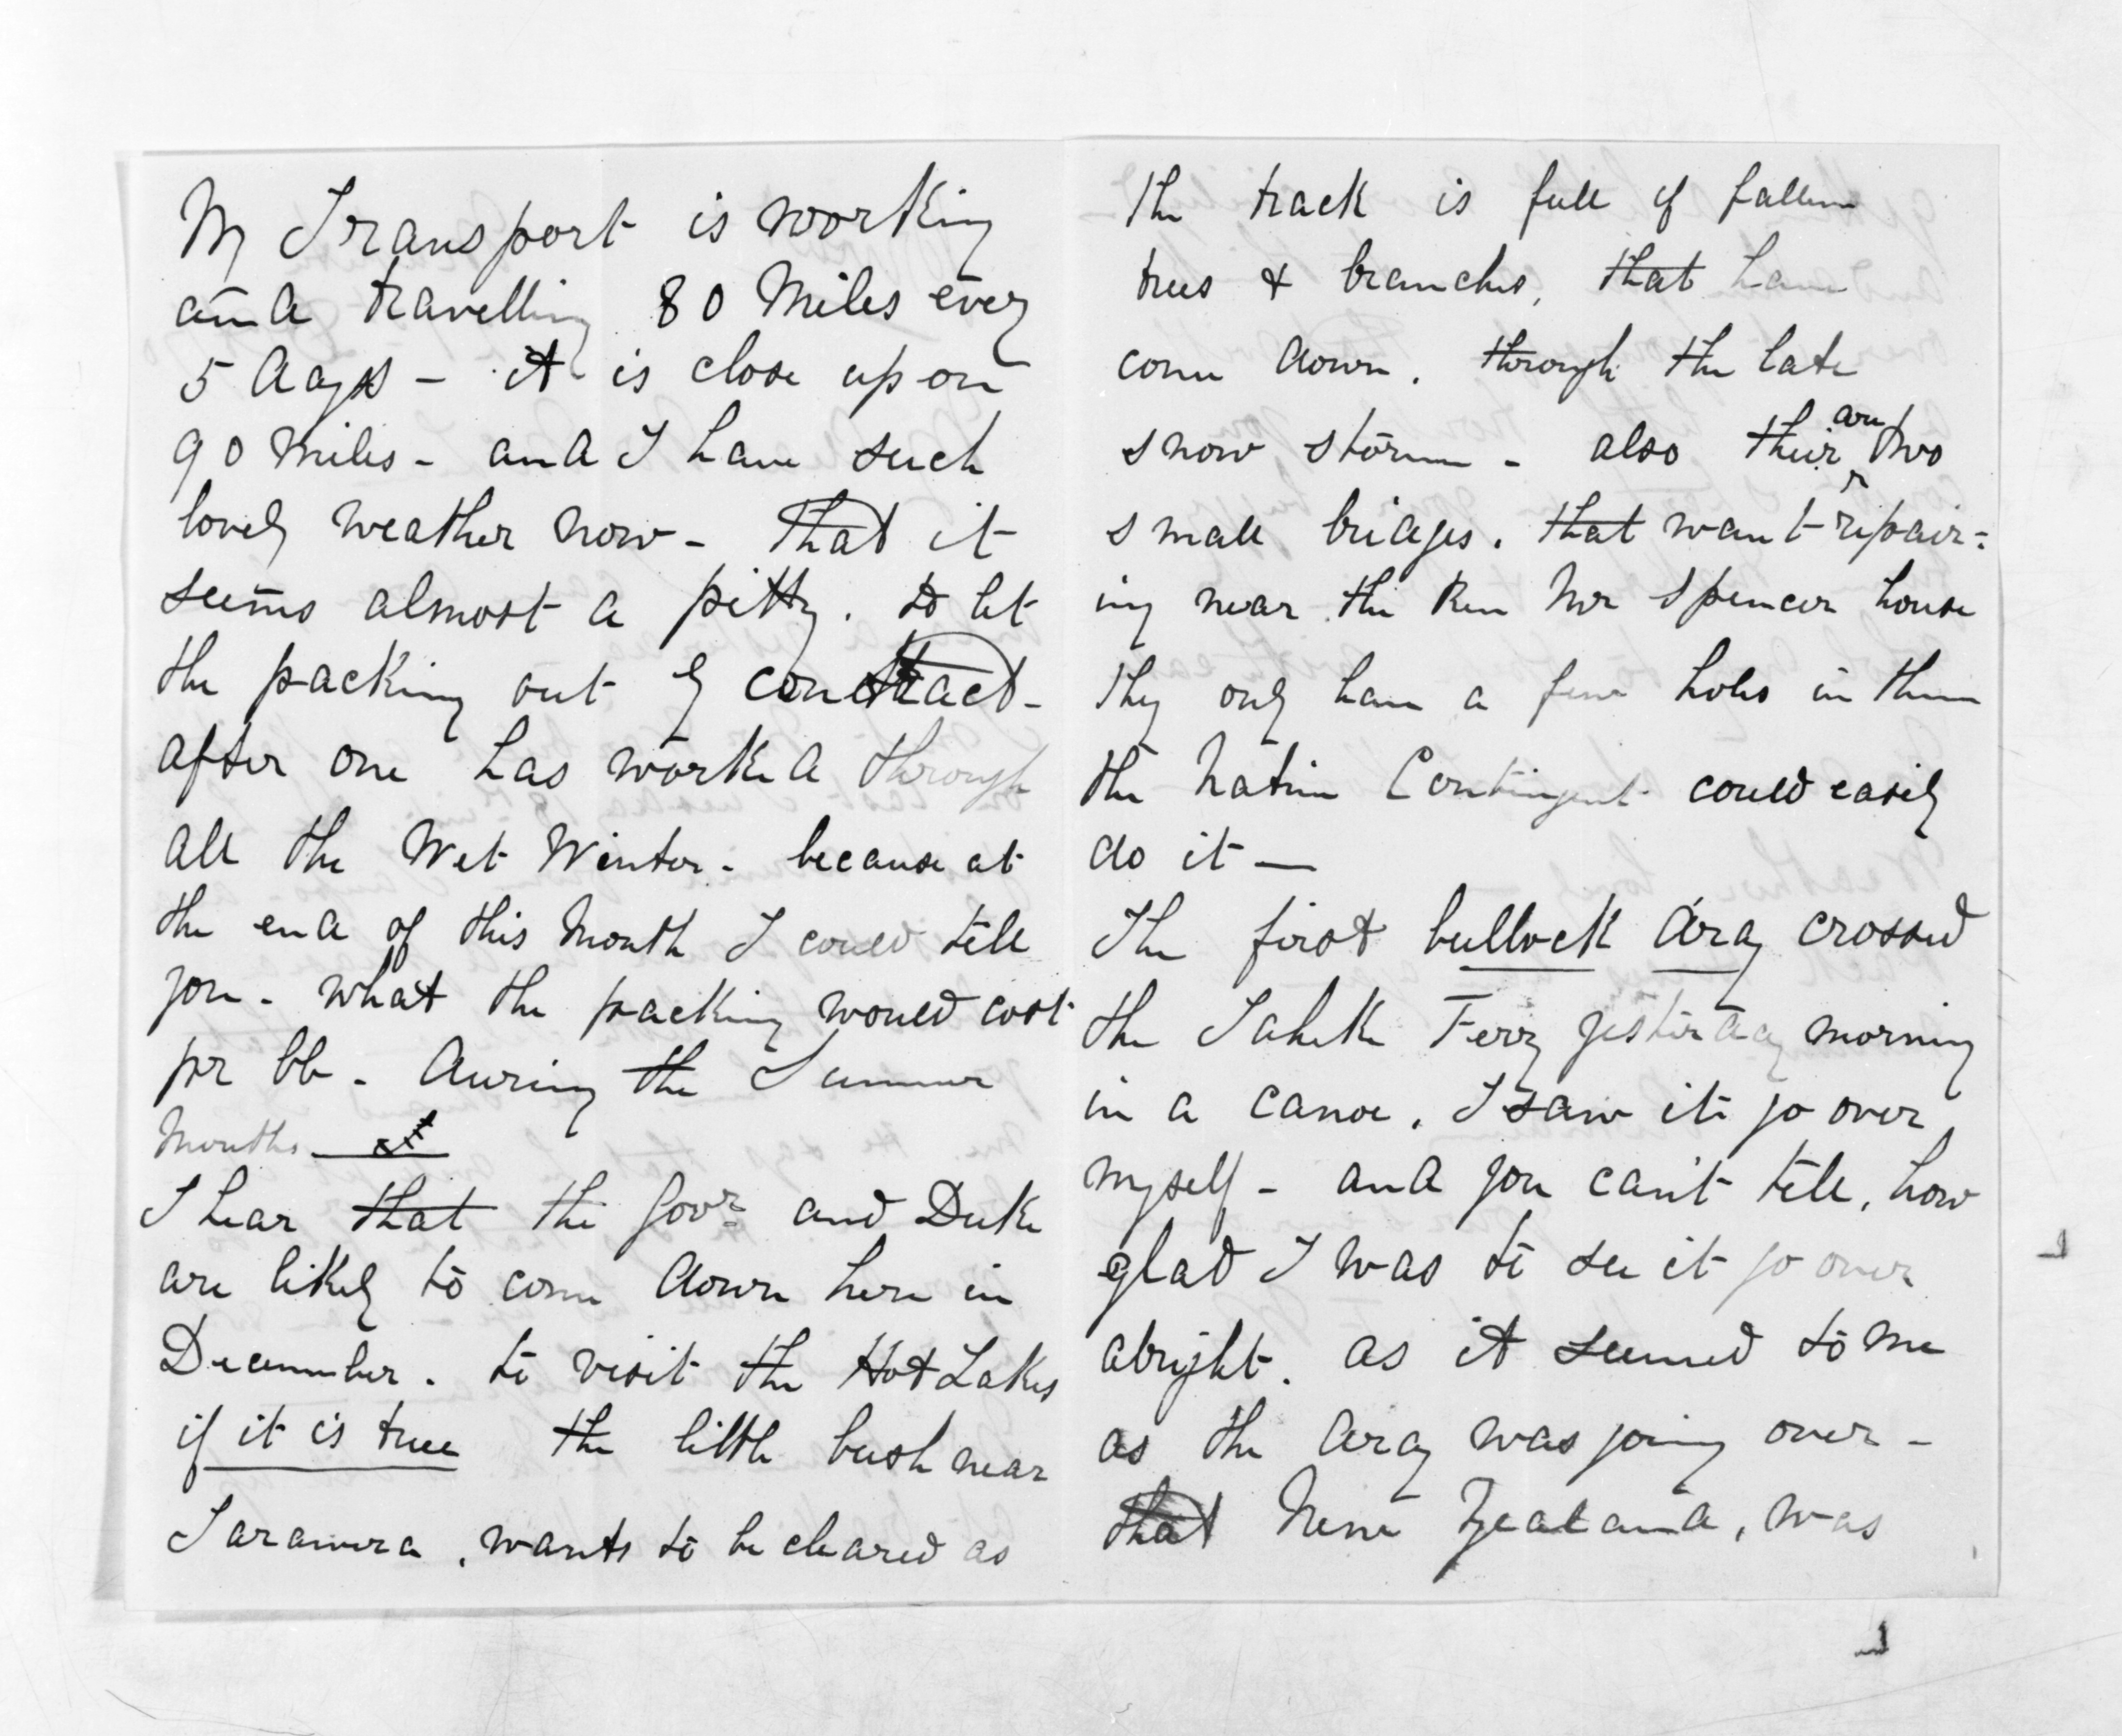 My Transport is working
and travelling 80 Miles every
5 days - it is close upon
90 Miles - and I have such
lovely weather now - that it
seems almost a pitty. to let
the packing out by contract -
after one has worked through
all the Wet Winter - because at
the end of this Month I could tell
you - what the packing would cost
pr lb - during the Summer
Months —
I hear that the Govr and Duke
are likely to come down here in
December - to visit the Hot Lakes
if it is true the little bush near
Tarawera, wants to be cleared as
the track is full of fallen
trees & branches, that have
come down. through the late
snow storm - also their are two
small bridges. that want repair=
ing near the Rev Mr Spencer house
they only have a few holes in them
the Native Contingent could easily
do it —
The first bullock dray crossed
the Taheke Ferry yesterday morning
in a canoe. I saw it go over
myself - and you can't tell, how
glad I was to see it go over
alright. as it seemed to me
as the dray was going over -
that New Zealand, was